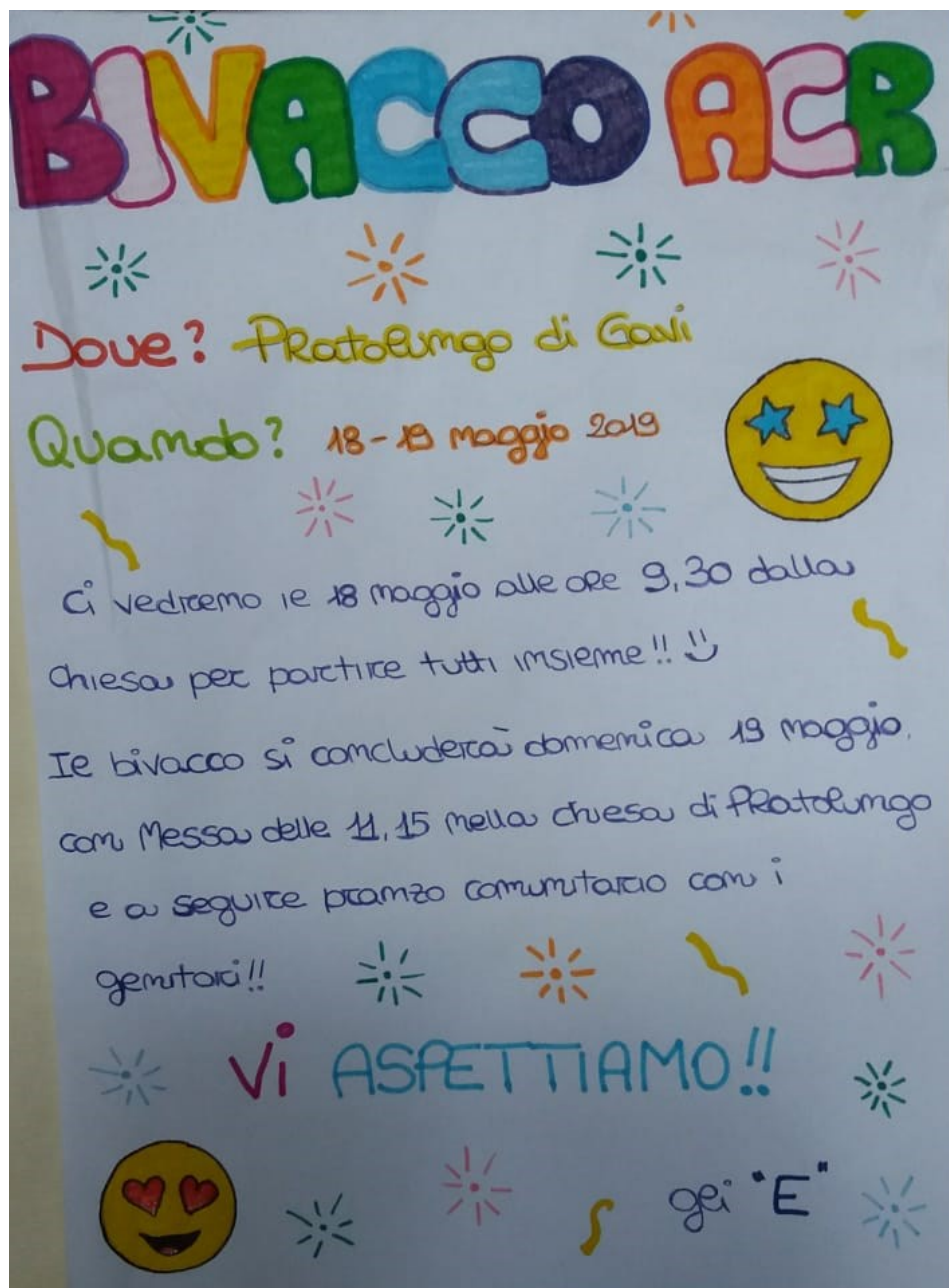 BIVACCO ACR
Dove? Pratolungo di Gavi
Quando? 18-19 maggio 2019
Ci vedremo il 18 maggio alle ore 9,30 dalla
chiesa per partire tutti insieme!!
Il bivacco si concluderà domenica 19 maggio.
con Messa delle 11,15 nella chiesa di Pratolungo
e a seguire pranzo comunitario con i
genitori!!
Vi ASPETTIAMO!!
gli "E"